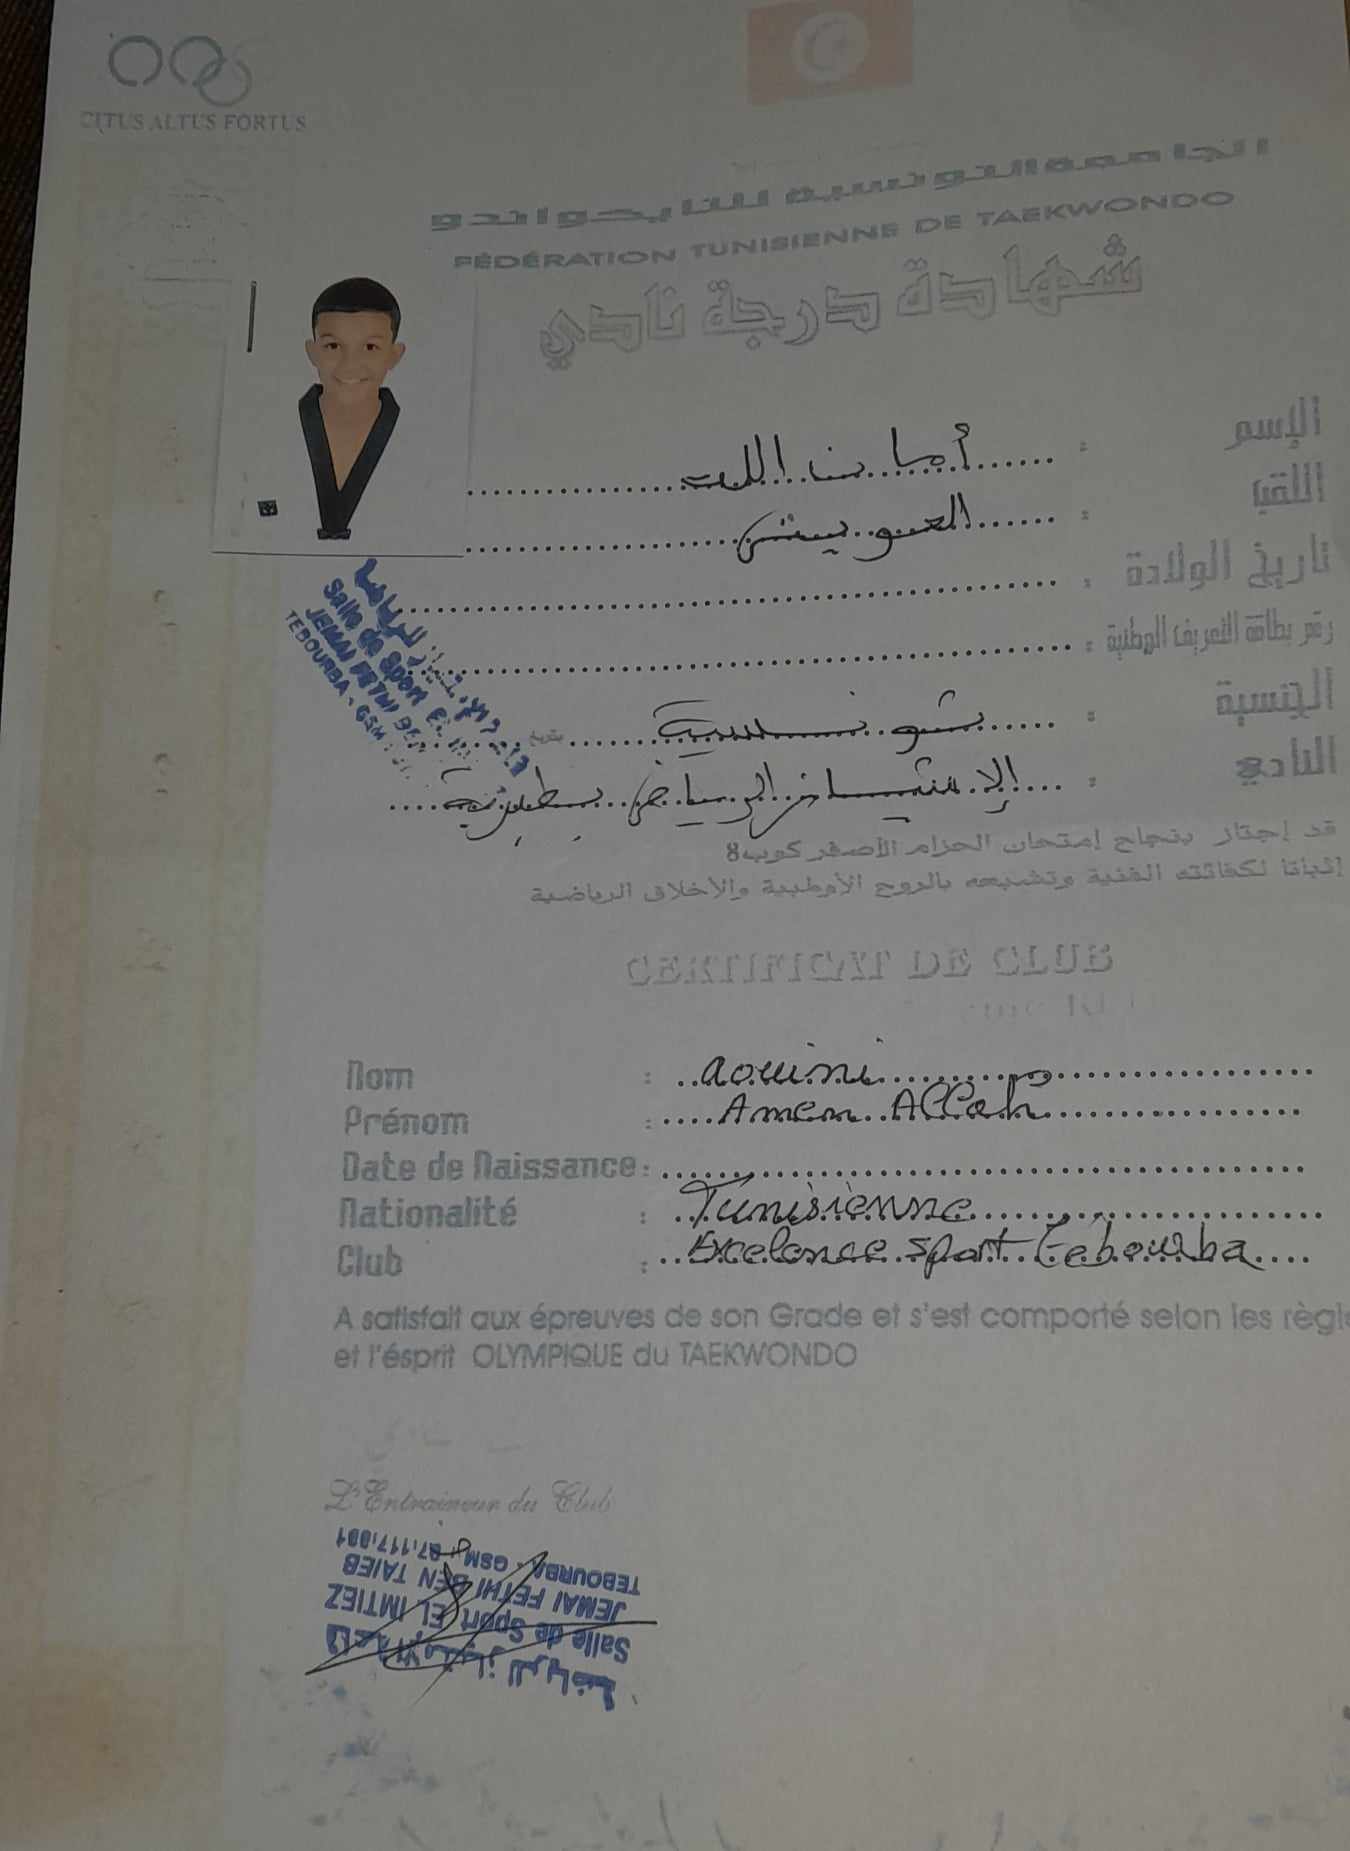 CITUS ALTUS FORTUS
الجامعة التونسية للتايكواندو
FÉDÉRATION TUNISIENNE DE TAEKWONDO
شهادة درجة نادي
الإسم : أمان الله
اللقب :
تاريخ الولادة :
رقم بطاقة التعريف الوطنية :
الجنسية : تونسية بتاريخ
النادي : الإمتياز الرياضي بطبربة
قد إجتاز بنجاح إمتحان الحزام الأصفر كوب8
إثباتا لكفائته الفنية وتشبعه بالروح الأولمبية والأخلاق الرياضية
Salle de Sport
JEMAI FETHI BEN
TEBOURBA - GSM
CERTIFICAT DE CLUB
Nom : aouini
Prénom : Amen Allah
Date de Naissance :
Nationalité : Tunisienne
Club : Excelence sport Tebourba
A satisfait aux épreuves de son Grade et s'est comporté selon les
et l'ésprit OLYMPIQUE du TAEKWONDO
L'Entraineur du Club
قاعة الإمتياز للرياضة
Salle de Sport EL IMTIEZ
JEMAI FETHI BEN TAIEB
TEBOURBA - GSM